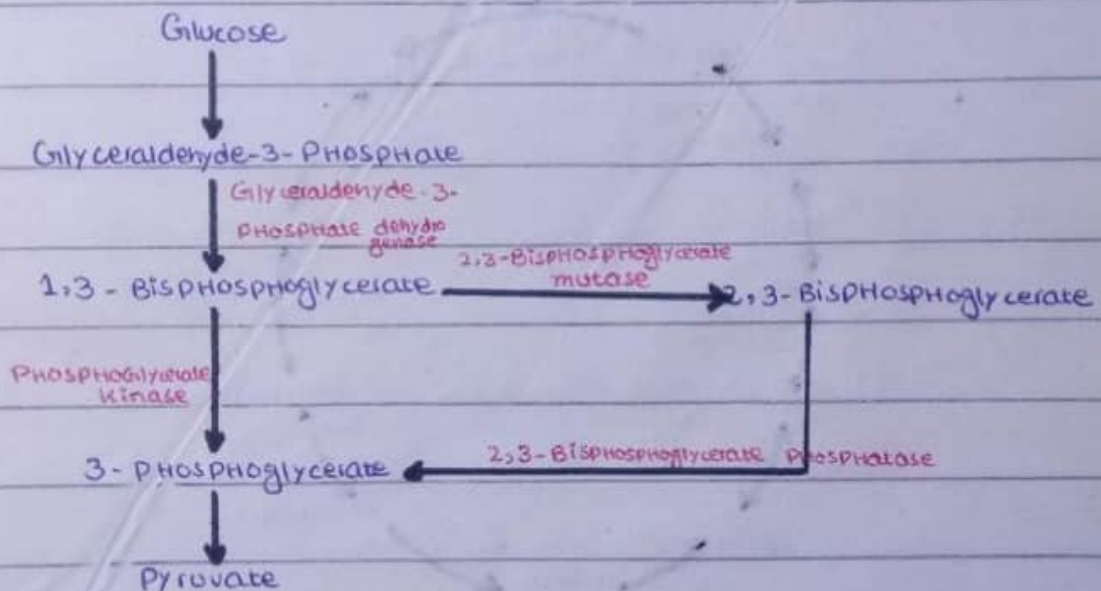 Glucose
Glyceraldehyde-3-Phosphate
Glyceraldenyde-3-
Phosphate dehydro
genase
2,3-Bisphosphoglycerate
mutase
1,3-Bisphosphoglycerate
2,3-Bisphosphoglycerate
Phosphoglycerate
kinase
2,3-Bisphosphoglycerate Phosphatase
3-Phosphoglycerate
Pyruvate